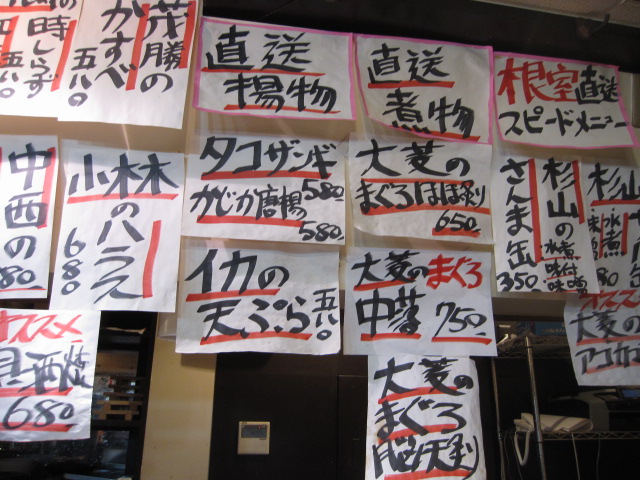 の時しらず
五八〇
茂勝の
かすべ
五八〇
直送
揚物
直送
煮物
根室直送
スピードメニュー
中西の
80
小林木
のハラス
680
タコザンギ
580
かじか唐揚
580
大菱の
まぐろほほ刺
650
杉山の
さんま缶
水煮
味付
味噌
350
杉山
水煮
80
イカの
天ぷら
五八〇
大菱のまぐろ
中落
750
オススメ
大菱の
オススメ
酒焼
680
大菱の
まぐろ
脳天刺